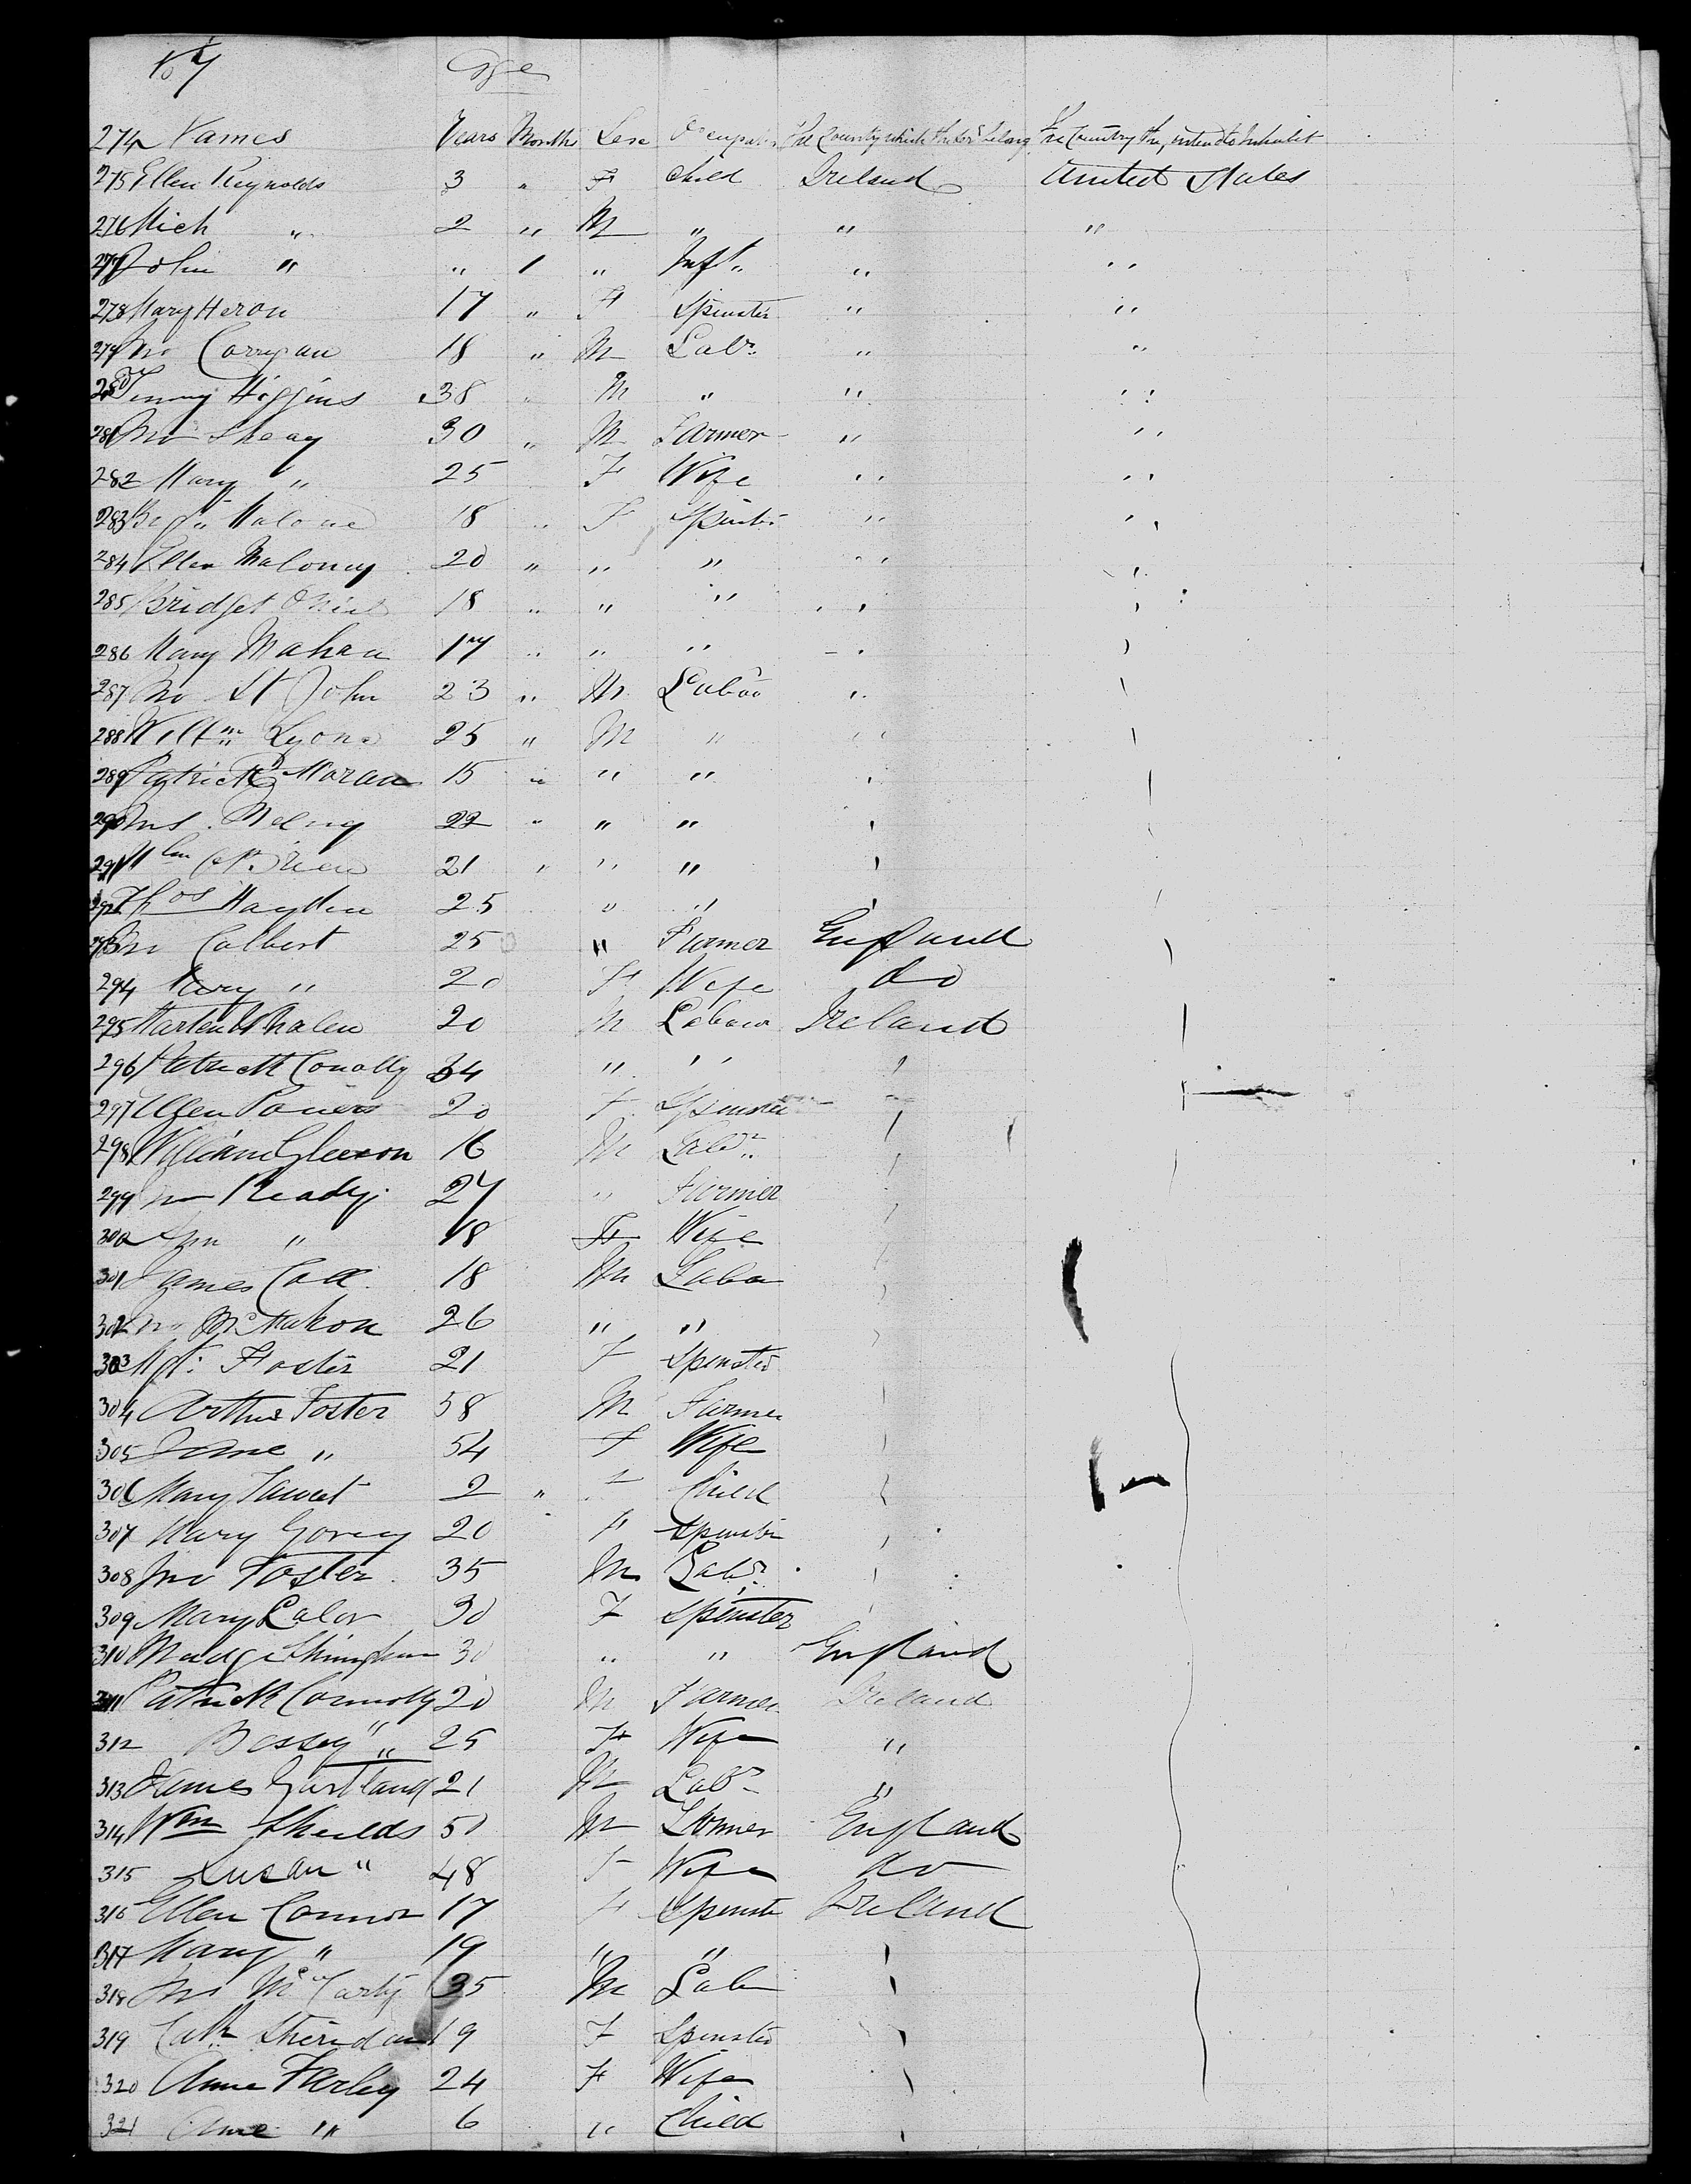 Age
274 Names Years Months Sex Occupation The Country which they belong The Country they intend to Inhabit
275 Ellen Reynolds 3 " F Child Ireland United States
276 Mich " 2 " M " " "
277 John " " 1 " Inft " "
278 Mary Heron 17 " F Spinster " "
279 Jno Corrigan 18 " M Labr " "
280 Higgins 38 " M " " "
281 Jno Sheay 30 " M Farmer " "
282 Mary " 25 F Wife " "
283 Malone 18 " F Spinstr " "
284 Ellen Maloney 20 " " " " "
285 Bridget O'Niel 18 " " " " "
286 Mary Mahan 17 " " " "
287 Jno St John 23 " M Labor "
288 Willm Lyons 25 " M " "
289 Patrick Moran 15 " " " "
290 22 " " "
291 Wm O'Brien 21 " " "
292 Thos Hayden 25 " "
293 Jno Colbert 25 " Farmer England
294 Mary " 20 F Wife do
295 Marten Whalen 20 M Labour Ireland
296 Patrick Conolly 34 " "
297 Ellen Powers 20 F Spinster
298 William Gleeson 16 M Labr
299 Jno Ready 27 " Farmer
300 Ann " 18 F Wife
301 James Coll 18 M Labor
302 Jno McMahon 26 " "
303 Mgt Foster 21 F Spinster
304 Arthur Foster 58 M Farmer
305 Jane " 54 F Wife
306 Mary 2 " F Child
307 Mary 20 F Spinster
308 Jno Foster 35 M Labr
309 Mary Lalor 30 F Spinster
310 Madge 30 " " England
311 Patrick Connolly 20 M Farmer Ireland
312 Bessey " 25 F Wife "
313 James Gartland 21 M Labr "
314 Wm Sheilds 50 M Farmer England
315 Susan " 48 F Wife do
316 Ellen Connor 17 F Spinste Ireland
317 Mary " 19 " "
318 Jno McCarty 35 M Labr
319 Cath Sheridan 19 F Spinster
320 Anne Farley 24 F Wife
321 Anne " 6 " Child